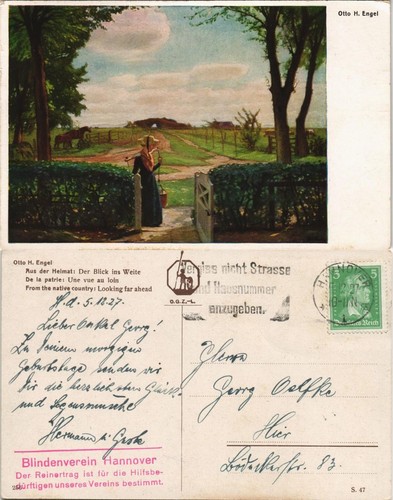 Otto H. Engel
Otto H. Engel
Aus der Heimat: Der Blick ins Weite
De la patrie: Une vue au loin
From the native country: Looking far ahead
D.G.Z.-L.
Vergiss nicht Strasse
und Hausnummer
anzugeben.
HANNOVER
5
5
H.d. 5.12.27.
Lieber Onkel Georg!
Zu Deinem morgigen
Geburtstage senden wir
Dir die herzlichsten Glück-
und Segenswünsche
Hermann u.
Herrn
Georg Oelfke
Hier
Bödekerstr. 83.
Blindenverein Hannover
Der Reinertrag ist für die Hilfsbe-
dürftigen unseres Vereins bestimmt.
S. 47